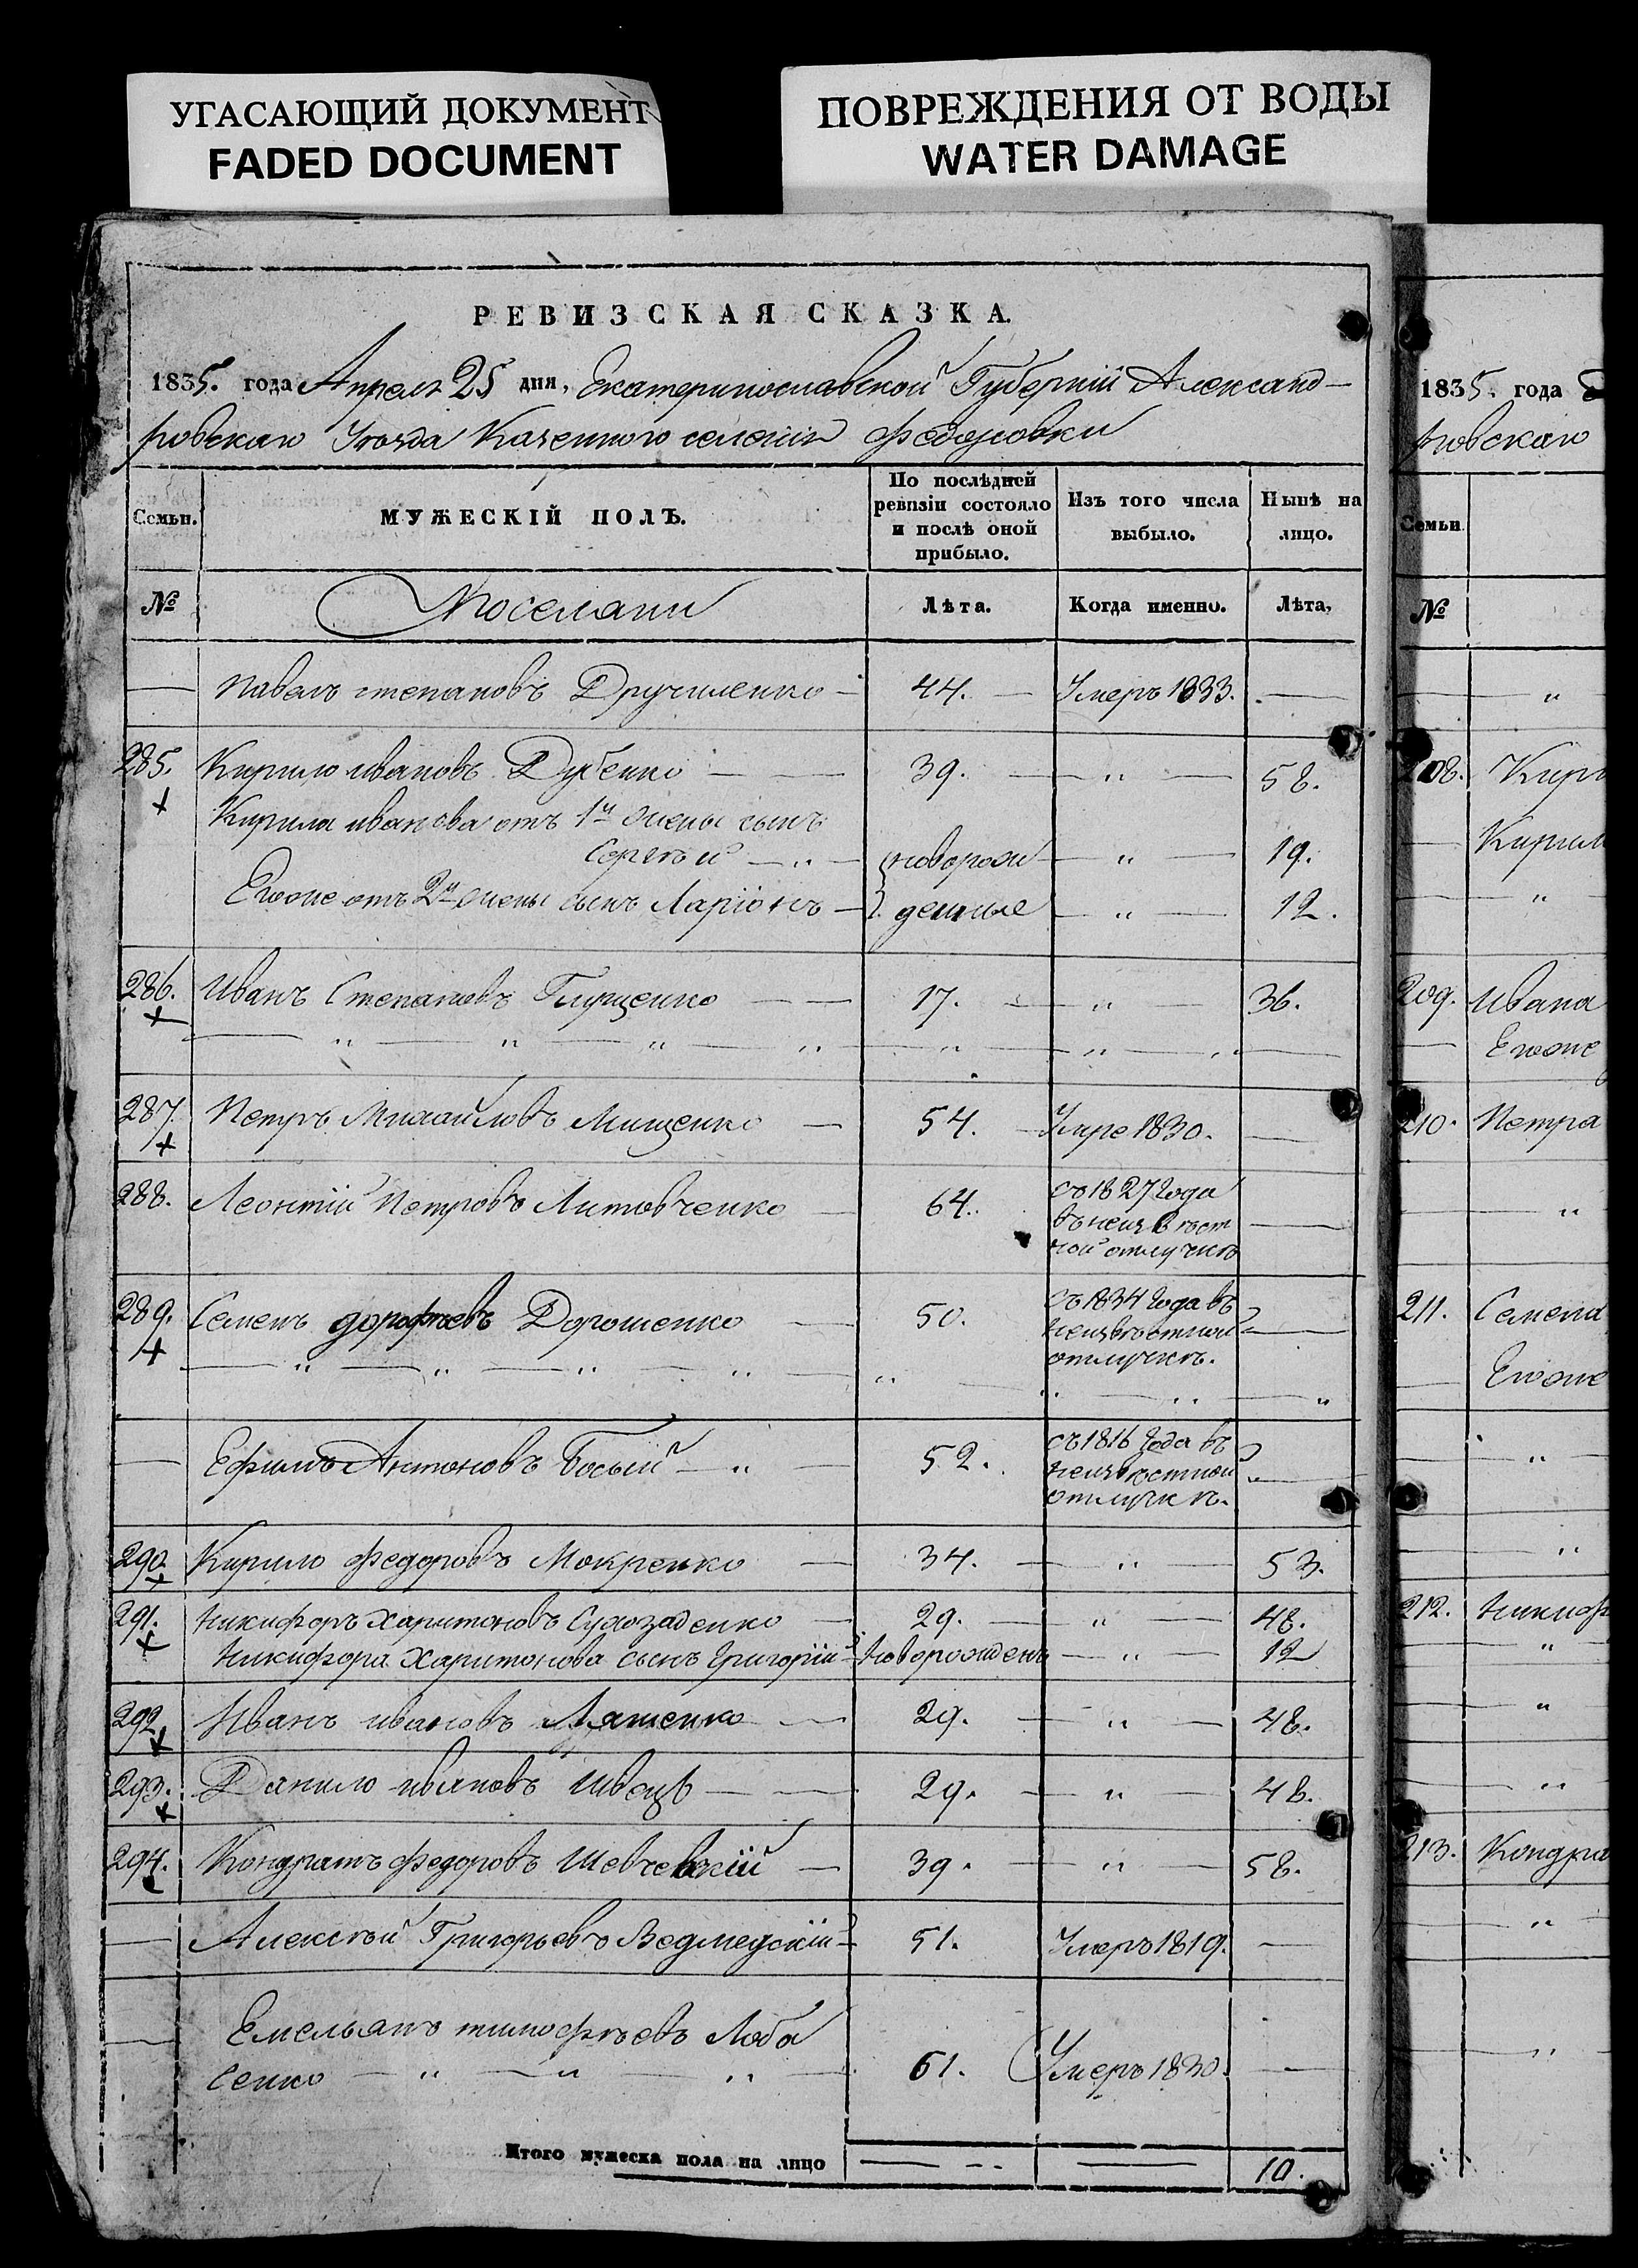 УГАСАЮЩИЙ ДОКУМЕНТ
FADED DOCUMENT
ПОВРЕЖДЕНИЯ ОТ ВОДЫ
WATER DAMAGE
РЕВИЗСКАЯ СКАЗКА.
1835. года Апреля 25 дня, Екатеринославской Губернiи Александ-
ровскаго Уѣзда Казенного селенiя Федоровки
Семьи.
МУЖЕСКІЙ ПОЛЪ.
По послѣдней ревизіи состояло и послѣ оной прибыло.
Изъ того числа выбыло.
Нынѣ на лицо.
№ Поселяни Лѣта. Когда именно. Лѣта,
— Павелъ степановъ Дручиленко — 44. — Умеръ 1833. —
285. Кирило ивановъ Дубенко — — 39. — " — 58.
+ Кирила иванова отъ 1й жены сынъ
Сергѣй — " — новорож — " — 19.
Егоже отъ 2й жены сынъ Ларіонъ — денные — " — 12.
286. Иванъ Степановъ Глущенко — — 17. — " — 36.
+ — " — " — " — " — " — " — " —
287. Петръ Михайловъ Мищенко — 54. — Умре 1830. —
+
288. Леонтій Петровъ Литовченко — 64. съ 1827 года
въ неизвѣст —
ной отлучкѣ
289. Семенъ дорофѣевъ Дорошенко — 50. съ 1834 года въ
+ неизвѣстной —
отлучкѣ.
— " — " — " — " " " — " — "
— Ефимъ Антоновъ Босый — " — 52. съ 1816 года въ
неизвѣстной "—
отлучкѣ.
290. Кирило Федоровъ Мокренко — 34. — " — 53.
+
291. Никифоръ Харитоновъ Сухозаденко — 29. — " — 48.
+ Никифора Харитонова сынъ Григорій — Новорожденъ — " — 12
292. Иванъ ивановъ Ляшенко — 29. — " — 48.
+
293. Данило ивановъ Швецъ — — 29. — " — 48.
+
294. Кондратъ Федоровъ Шевчевскій — 39. — " — 58.
— Алексѣй Григорьевъ Ведмедскій — 51. Умеръ 1819. —
— Емельянъ тимофѣевъ Лоба
сенко — " — " — " — 61. Умеръ 1830. —
Итого мужеска пола на лицо — - - — 10.
1835. года
ровскаго
Семьи
№
— "
208. Кир
— Кирил
— "
209. Ивана
— Егоже
210. Петра
— "
211. Семена
— Егоже
— "
— "
212. Никиф
— "
— "
— "
213. Кондра
— "
— "